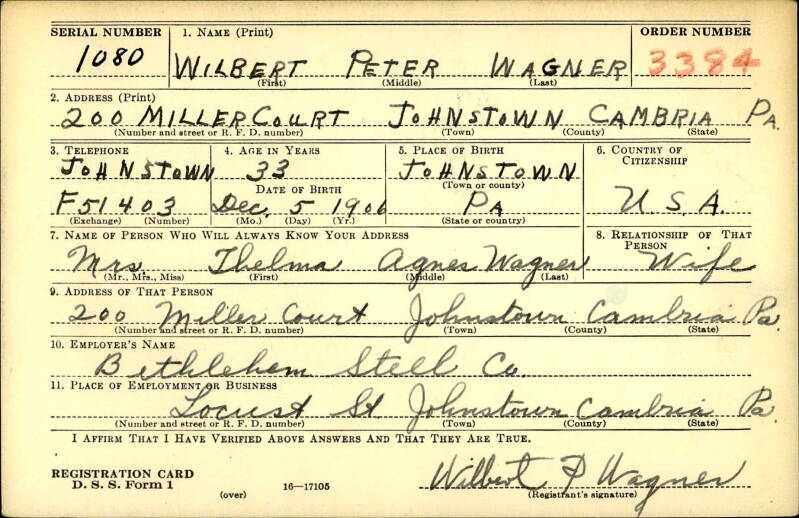 SERIAL NUMBER 1. NAME (Print) ORDER NUMBER
1080 WILBERT PETER WAGNER 3384
(First) (Middle) (Last)
2. ADDRESS (Print)
200 MILLER COURT JOHNSTOWN CAMBRIA PA.
(Number and street or R. F. D. number) (Town) (County) (State)
3. TELEPHONE 4. AGE IN YEARS 5. PLACE OF BIRTH 6. COUNTRY OF CITIZENSHIP
JOHNSTOWN 33 JOHNSTOWN
DATE OF BIRTH (Town or county)
F51403 Dec. 5 1906 PA U.S.A.
(Exchange) (Number) (Mo.) (Day) (Yr.) (State or country)
7. NAME OF PERSON WHO WILL ALWAYS KNOW YOUR ADDRESS 8. RELATIONSHIP OF THAT PERSON
Mrs. Thelma Agnes Wagner Wife
(Mr., Mrs., Miss) (First) (Middle) (Last)
9. ADDRESS OF THAT PERSON
200 Miller Court Johnstown Cambria Pa.
(Number and street or R. F. D. number) (Town) (County) (State)
10. EMPLOYER'S NAME
Bethlehem Steel Co.
11. PLACE OF EMPLOYMENT OR BUSINESS
Locust St Johnstown Cambria Pa.
(Number and street or R. F. D. number) (Town) (County) (State)
I AFFIRM THAT I HAVE VERIFIED ABOVE ANSWERS AND THAT THEY ARE TRUE.
REGISTRATION CARD Wilbert P Wagner
D. S. S. Form 1 (over) 16—17105 (Registrant's signature)